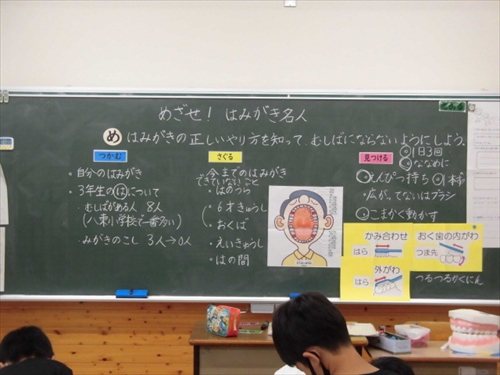 めざせ！はみがき名人
め はみがきの正しいやり方を知って、むしばにならないようにしよう。
つかむ
・自分のはみがき
・3年生のはについて
むしばがある人 8人
(八東小学校で一番多い)
・みがきのこし 3人→0人
さぐる
今までのはみがき
できていないこと
・はのうら
・6才きゅうし
・おくば
・えいきゅうし
・はの間
見つける
1日3回
ななめに
えんぴつ持ち 1本ずつ
・広がってないはブラシ
こまかく動かす
かみ合わせ
はら
おく歯の内がわ
つま先
外がわ
はら
つるつるかくにん